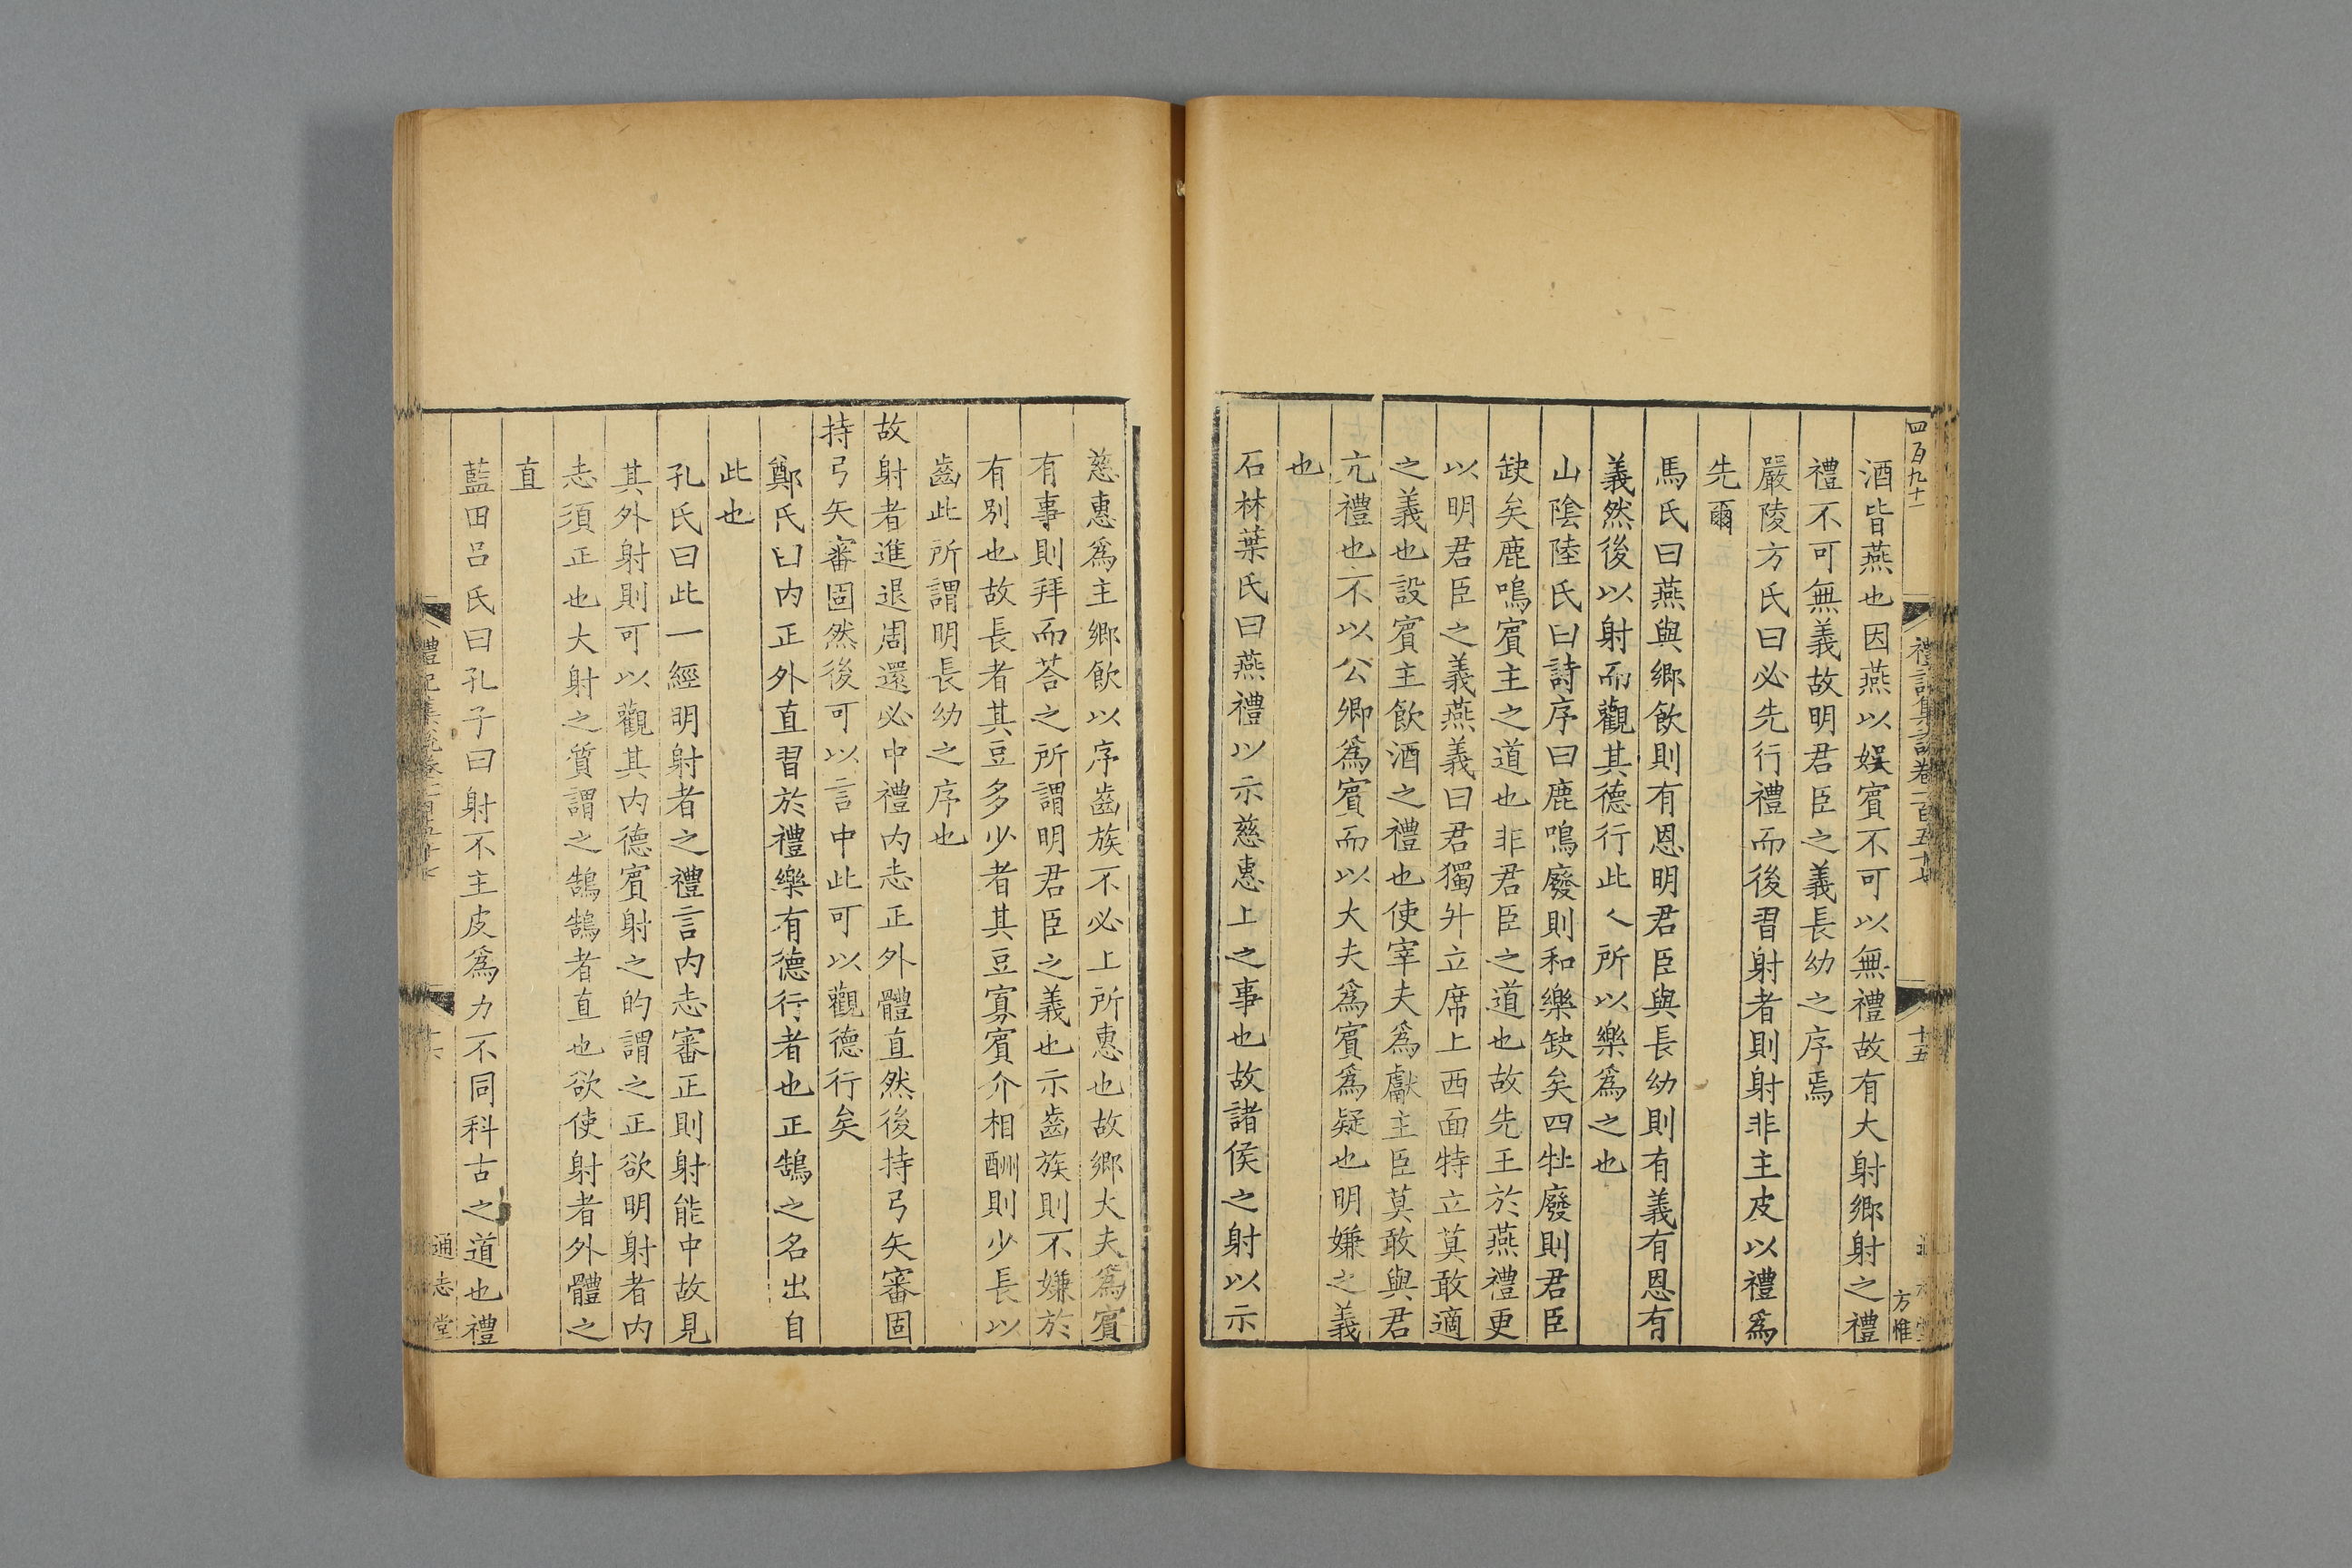 四百九十一
禮記集說卷一百五十七
十五
方惟
酒皆燕也因燕以娛賓不可以無禮故有大射鄉射之禮
禮不可無義故明君臣之義長幼之序焉
嚴陵方氏曰必先行禮而後習射者則射非主皮以禮爲
先爾
馬氏曰燕與鄉飲則有恩明君臣與長幼則有義有恩有
義然後以射而觀其德行此人所以樂爲之也
山陰陸氏曰詩序曰鹿鳴廢則和樂缺矣四牡廢則君臣
缺矣鹿鳴賓主之道也非君臣之道也故先王於燕禮更
以明君臣之義燕義曰君獨升立席上西面特立莫敢適
之義也設賓主飲酒之禮也使宰夫爲獻主臣莫敢與君
亢禮也不以公卿爲賓而以大夫爲賓爲疑也明嫌之義
也
石林葉氏曰燕禮以示慈惠上之事也故諸侯之射以示
慈惠爲主鄉飲以序齒族不必上所惠也故鄉大夫爲賓
有事則拜而荅之所謂明君臣之義也示齒族則不嫌於
有別也故長者其豆多少者其豆寡賓介相酬則少長以
齒此所謂明長幼之序也
故射者進退周還必中禮内志正外體直然後持弓矢審固
持弓矢審固然後可以言中此可以觀德行矣
鄭氏曰内正外直習於禮樂有德行者也正鵠之名出自
此也
孔氏曰此一經明射者之禮言内志審正則射能中故見
其外射則可以觀其内德賓射之的謂之正欲明射者内
志須正也大射之質謂之鵠鵠者直也欲使射者外體之
直
藍田呂氏曰孔子曰射不主皮爲力不同科古之道也禮
禮記集說卷一百五十七
十六
通志堂